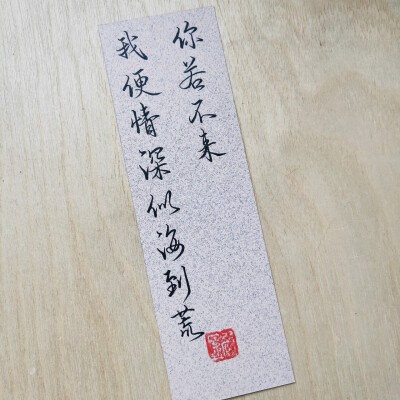 你若不来
我便情深似海到荒